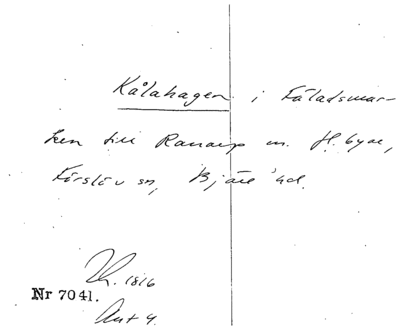 Kålahagen i Fäladsmar-
ken till Ranarp m. fl. byar,
Förslöv sn, Bjäre hd.
1816
Nr 7041.
Akt 4.